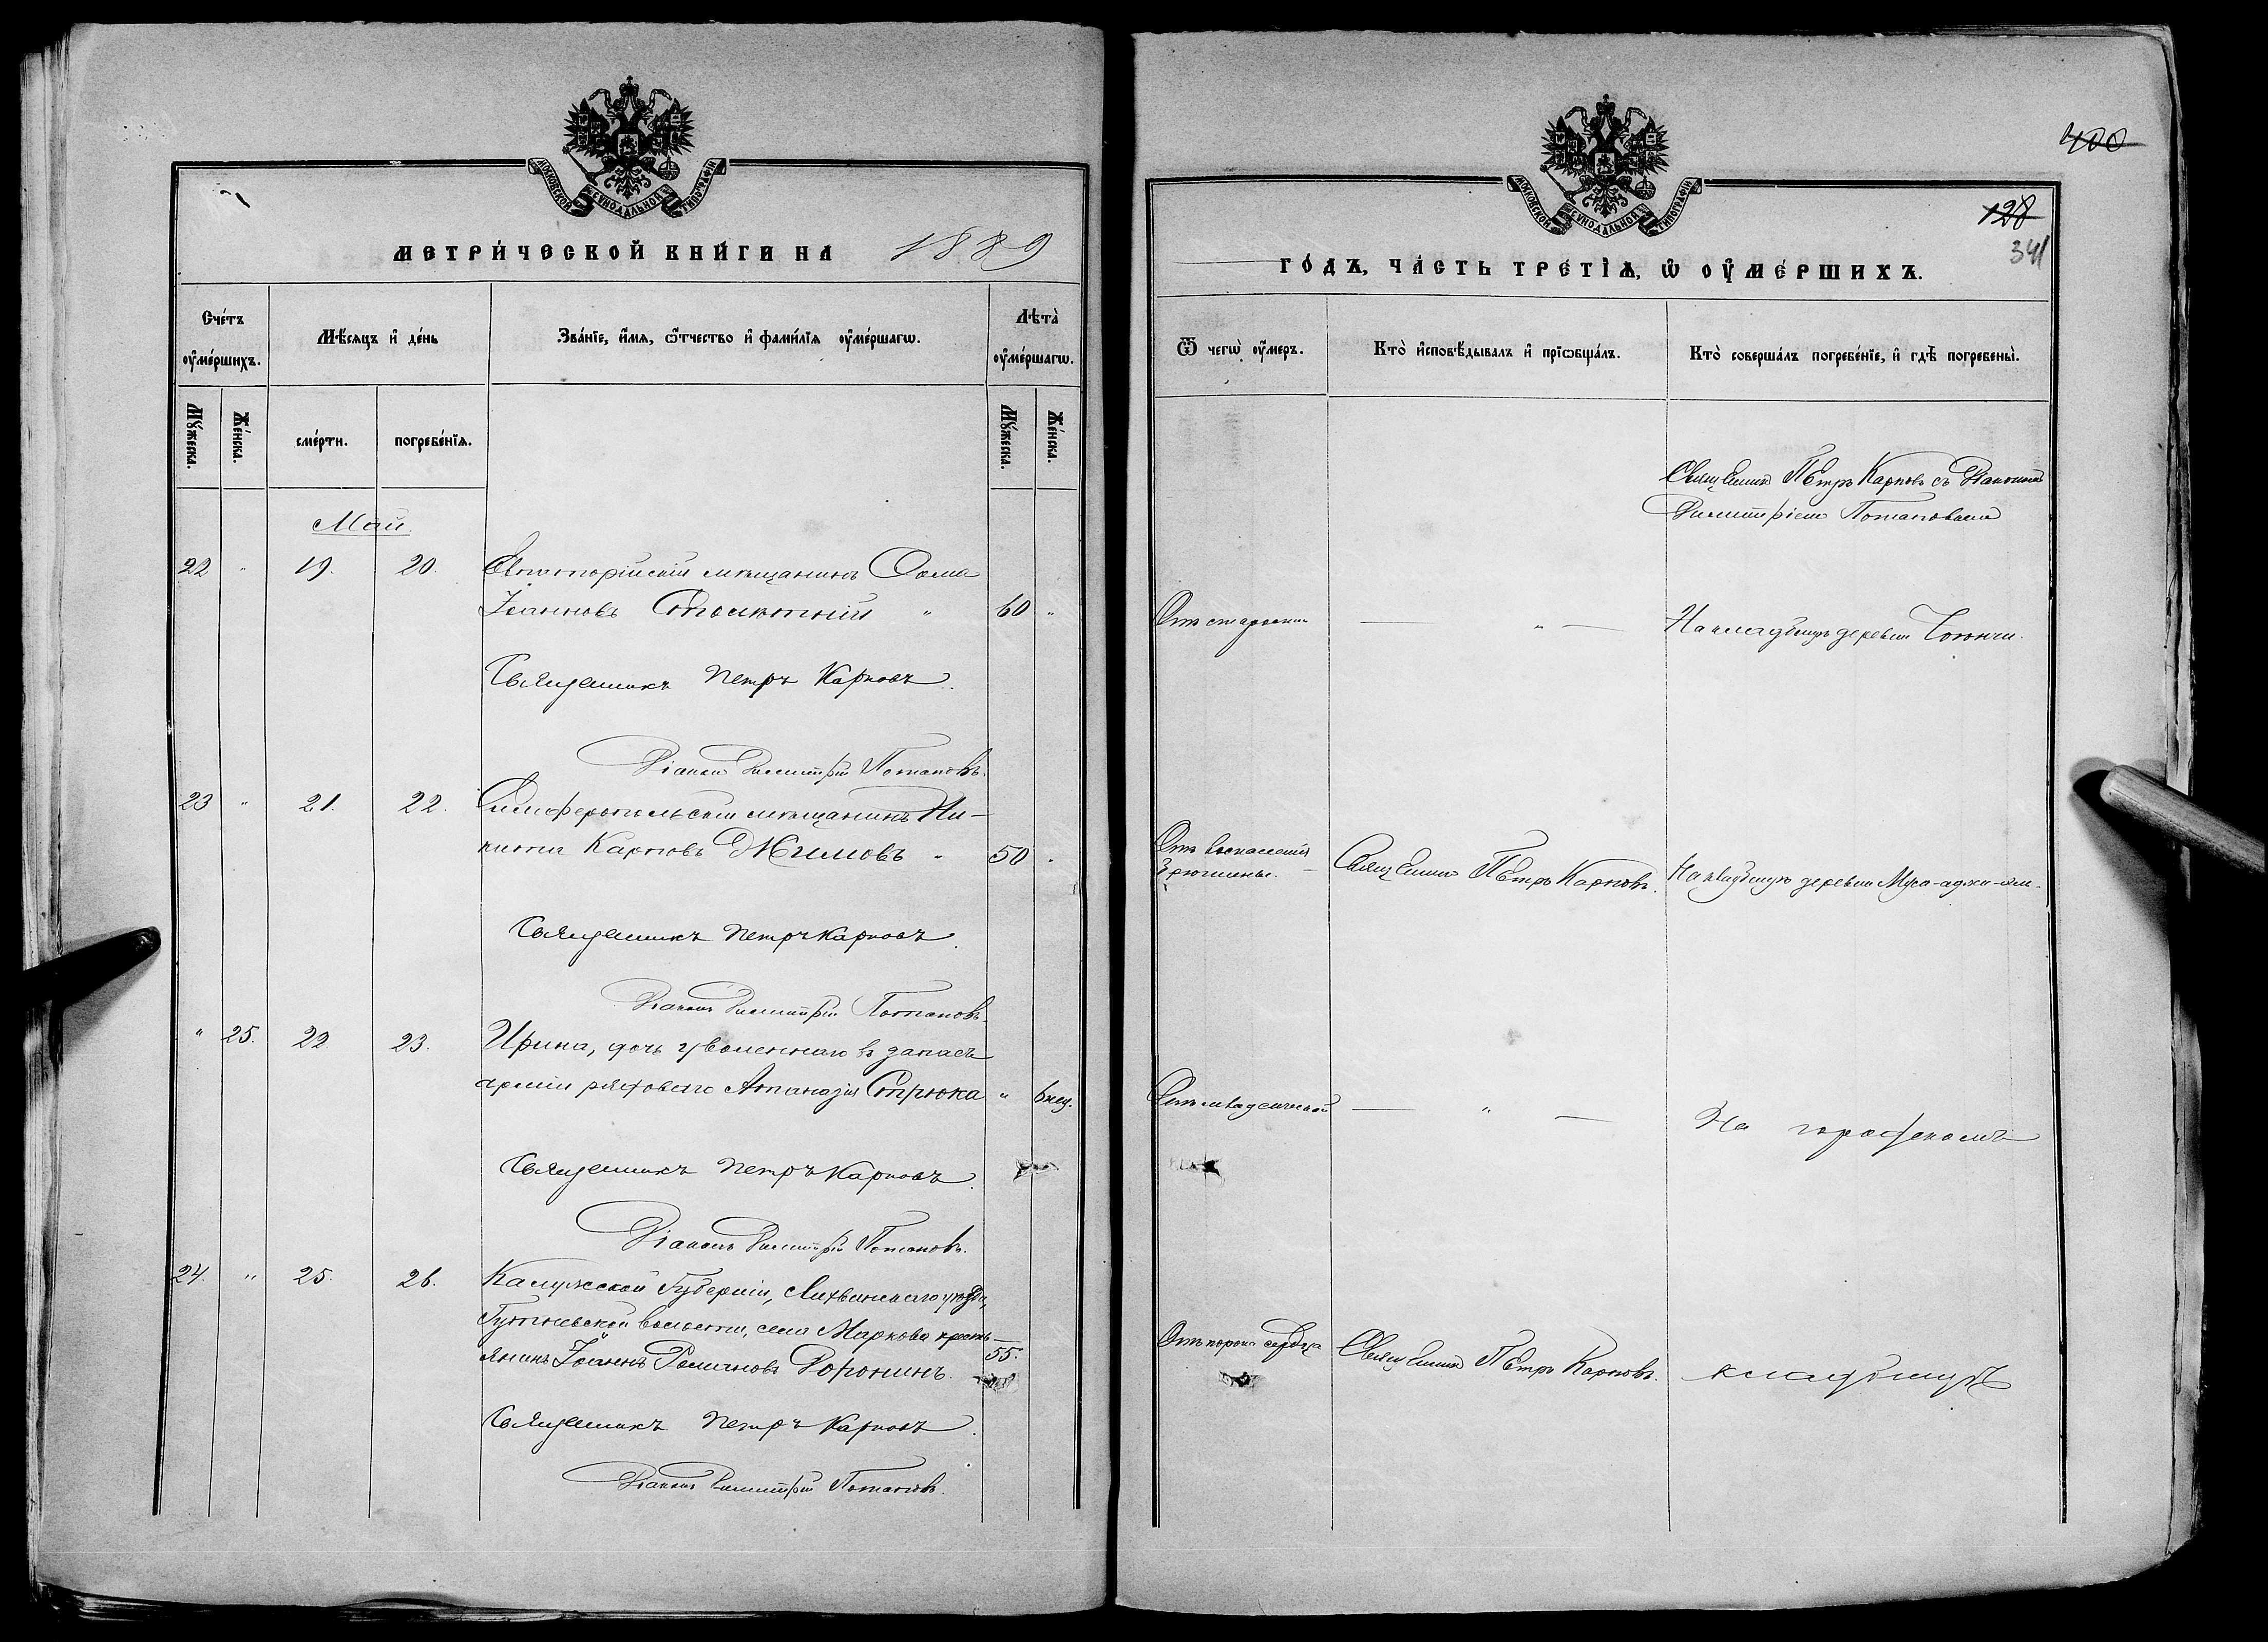 МОСКОВСКОЙ СѴНОДАЛЬНОЙ ТИПОГРАФІИ
МЕТРИ́ЧЕСКОЙ КНИ́ГИ НА 1889
Сче́тъ оу҆ме́ршихъ.
Мѣ́сяцъ и҆ де́нь
Зва́нїе, и҆́мѧ, ѻ҆́тчество и҆ фами́лїѧ оу҆ме́ршагѡ.
Лѣ́та оу҆ме́ршагѡ.
Мꙋ́жеска.
Же́нска.
сме́рти.
погребе́нїѧ.
Мꙋ́жеска.
Же́нска.
Май
22 " 19. 20. Евпаторійскій мѣщанинъ Ѳома
Іоанновъ " 60 "
Священникъ Петръ Карповъ.
Діаконъ Димитрій Потаповъ.
23 " 21. 22. Симферопольскій мѣщанинъ Ни-
кита Карповъ " 50 "
Священникъ Петръ Карповъ.
Діаконъ Димитрій Потаповъ.
" 25. 22 23. Ирина, дочь уволеннаго въ запасъ
арміи рядоваго Атаназія Стрюка " 6 мец.
Священникъ Петръ Карповъ.
Діаконъ Димитрій Потаповъ.
24. " 25. 26. Калужской Губерніи, Лихвинскаго уѣзда,
волости, села Маркова кресть-
янинъ Іоаннъ Романовъ Доронинъ. 55.
Священникъ Петръ Карповъ.
Діаконъ Димитрій Потаповъ.
400
МОСКОВСКОЙ СѴНОДАЛЬНОЙ ТИПОГРАФІИ
128
341
ГО́ДЪ, ЧА́СТЬ ТРЕ́ТЇѦ, Ѡ҆ ОУ҆МЕ́РШИХЪ.
Ѿ чегѡ̀ оу҆́меръ.
Кто̀ и҆сповѣ́дывалъ и҆ прїѡбща́лъ.
Кто̀ соверша́лъ погребе́нїе, и҆ гдѣ̀ погребены̀.
Священникъ Петръ Карповъ съ Діакономъ
Димитріемъ Потаповымъ
Отъ старости — " — На кладбищѣ деревни
Отъ воспаленія
брюшины. — Священникъ Петръ Карповъ. На кладбищѣ деревни
— " — На городскомъ
Отъ порока сердца Священникъ Петръ Карповъ. кладбищѣ